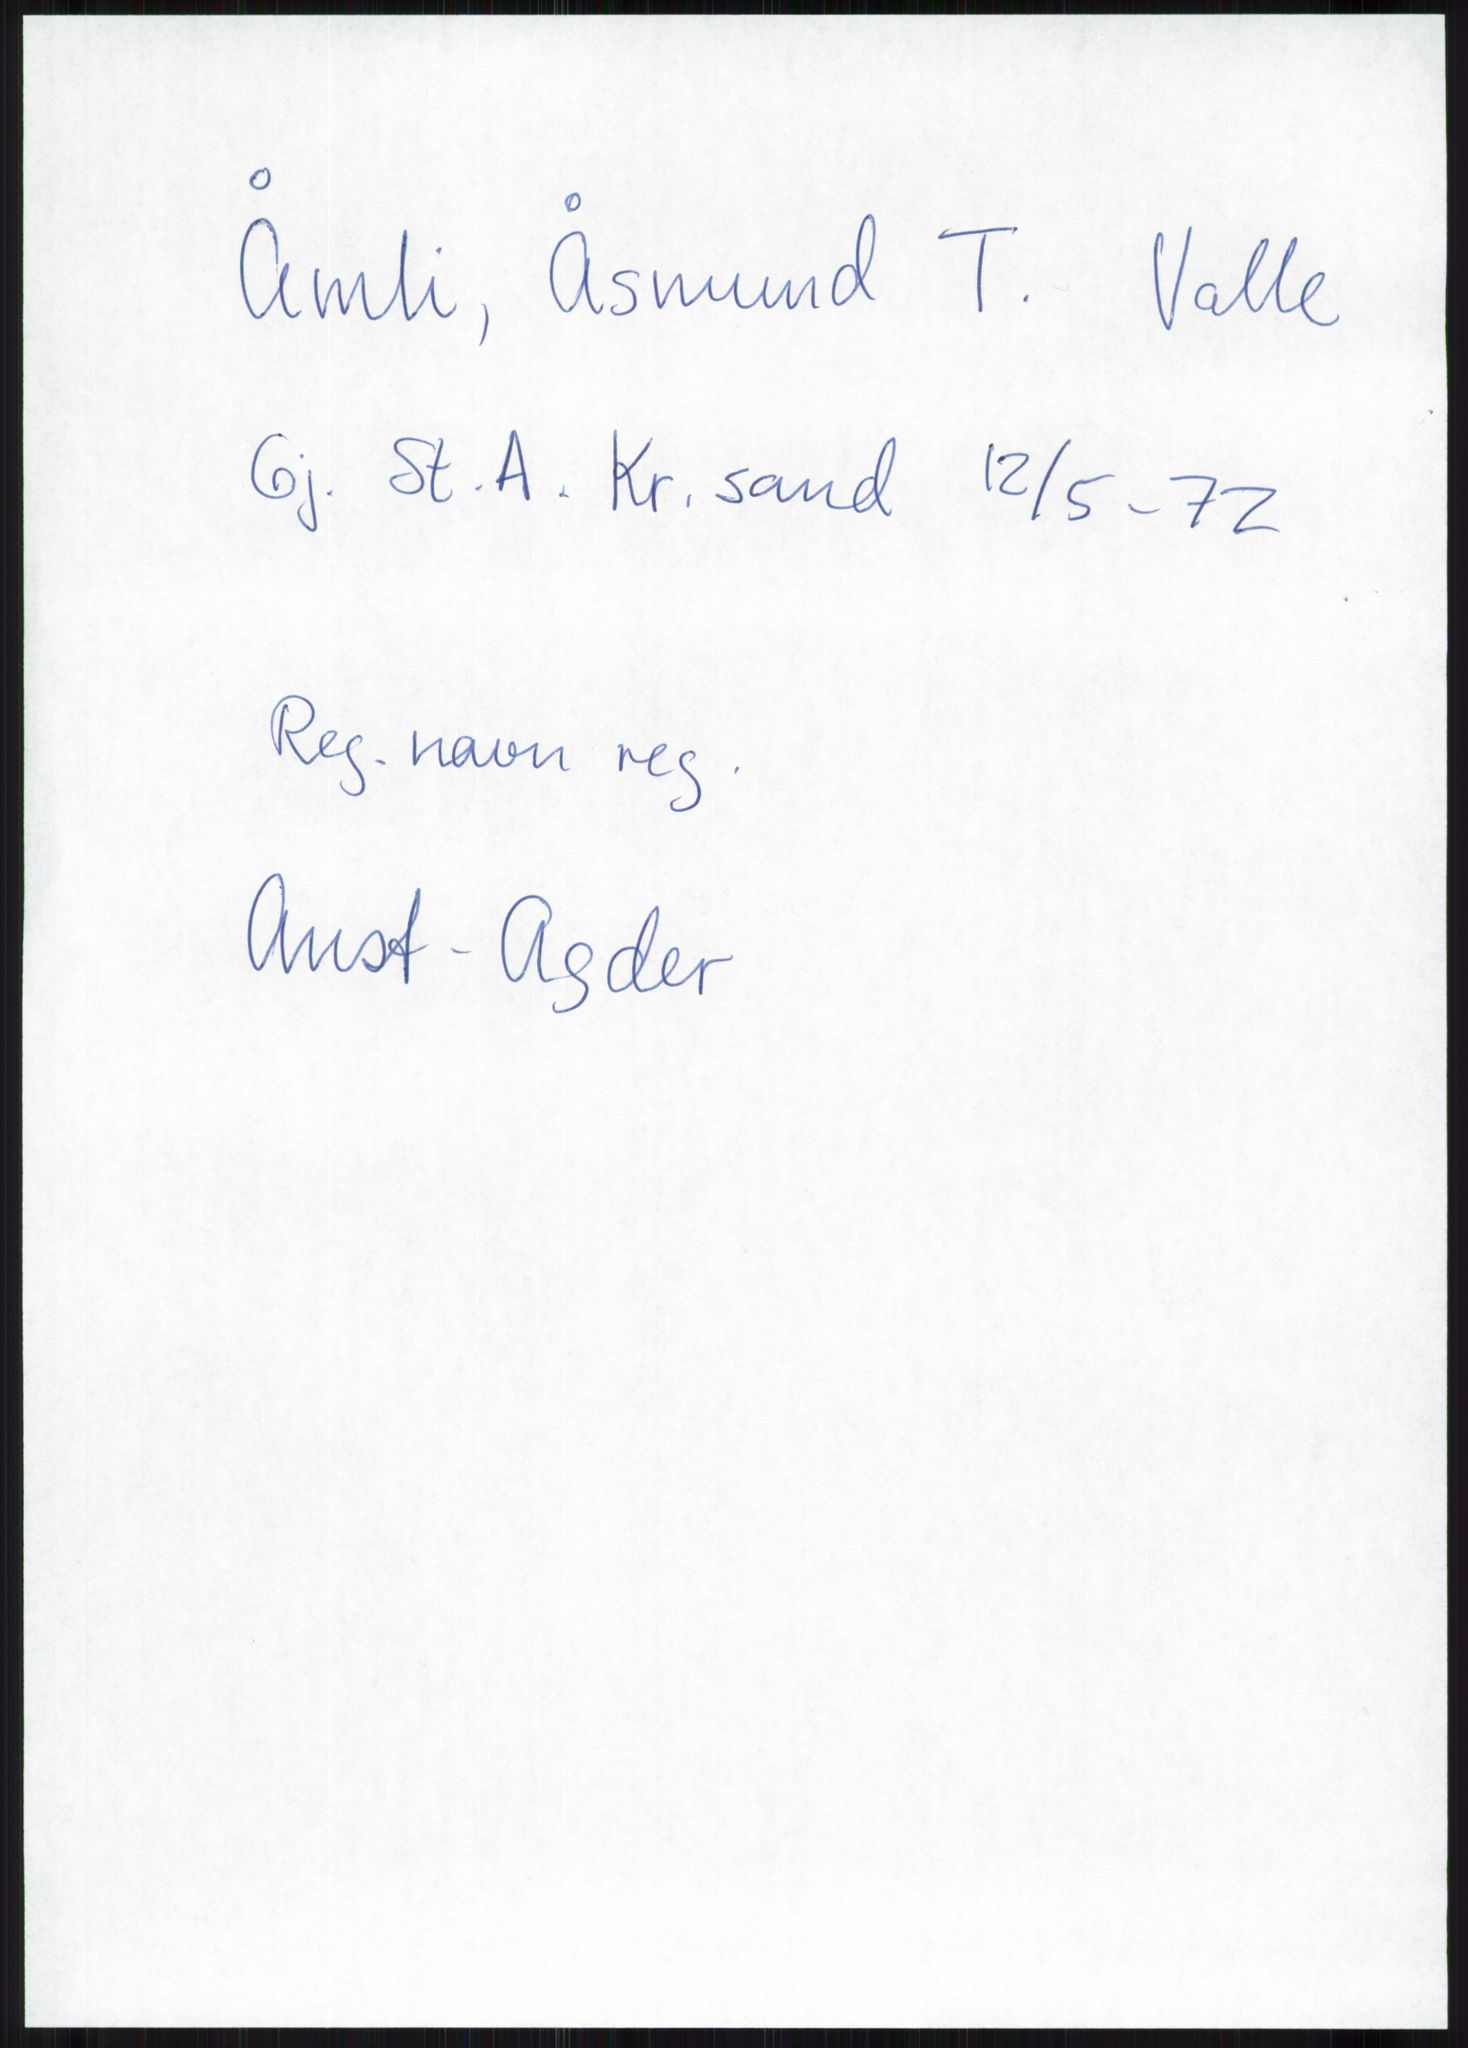 Åmli, Åsmund T. Valle
Gj. St.A. Kr.sand 12/5-72
Reg. navn reg.
Aust-Agder